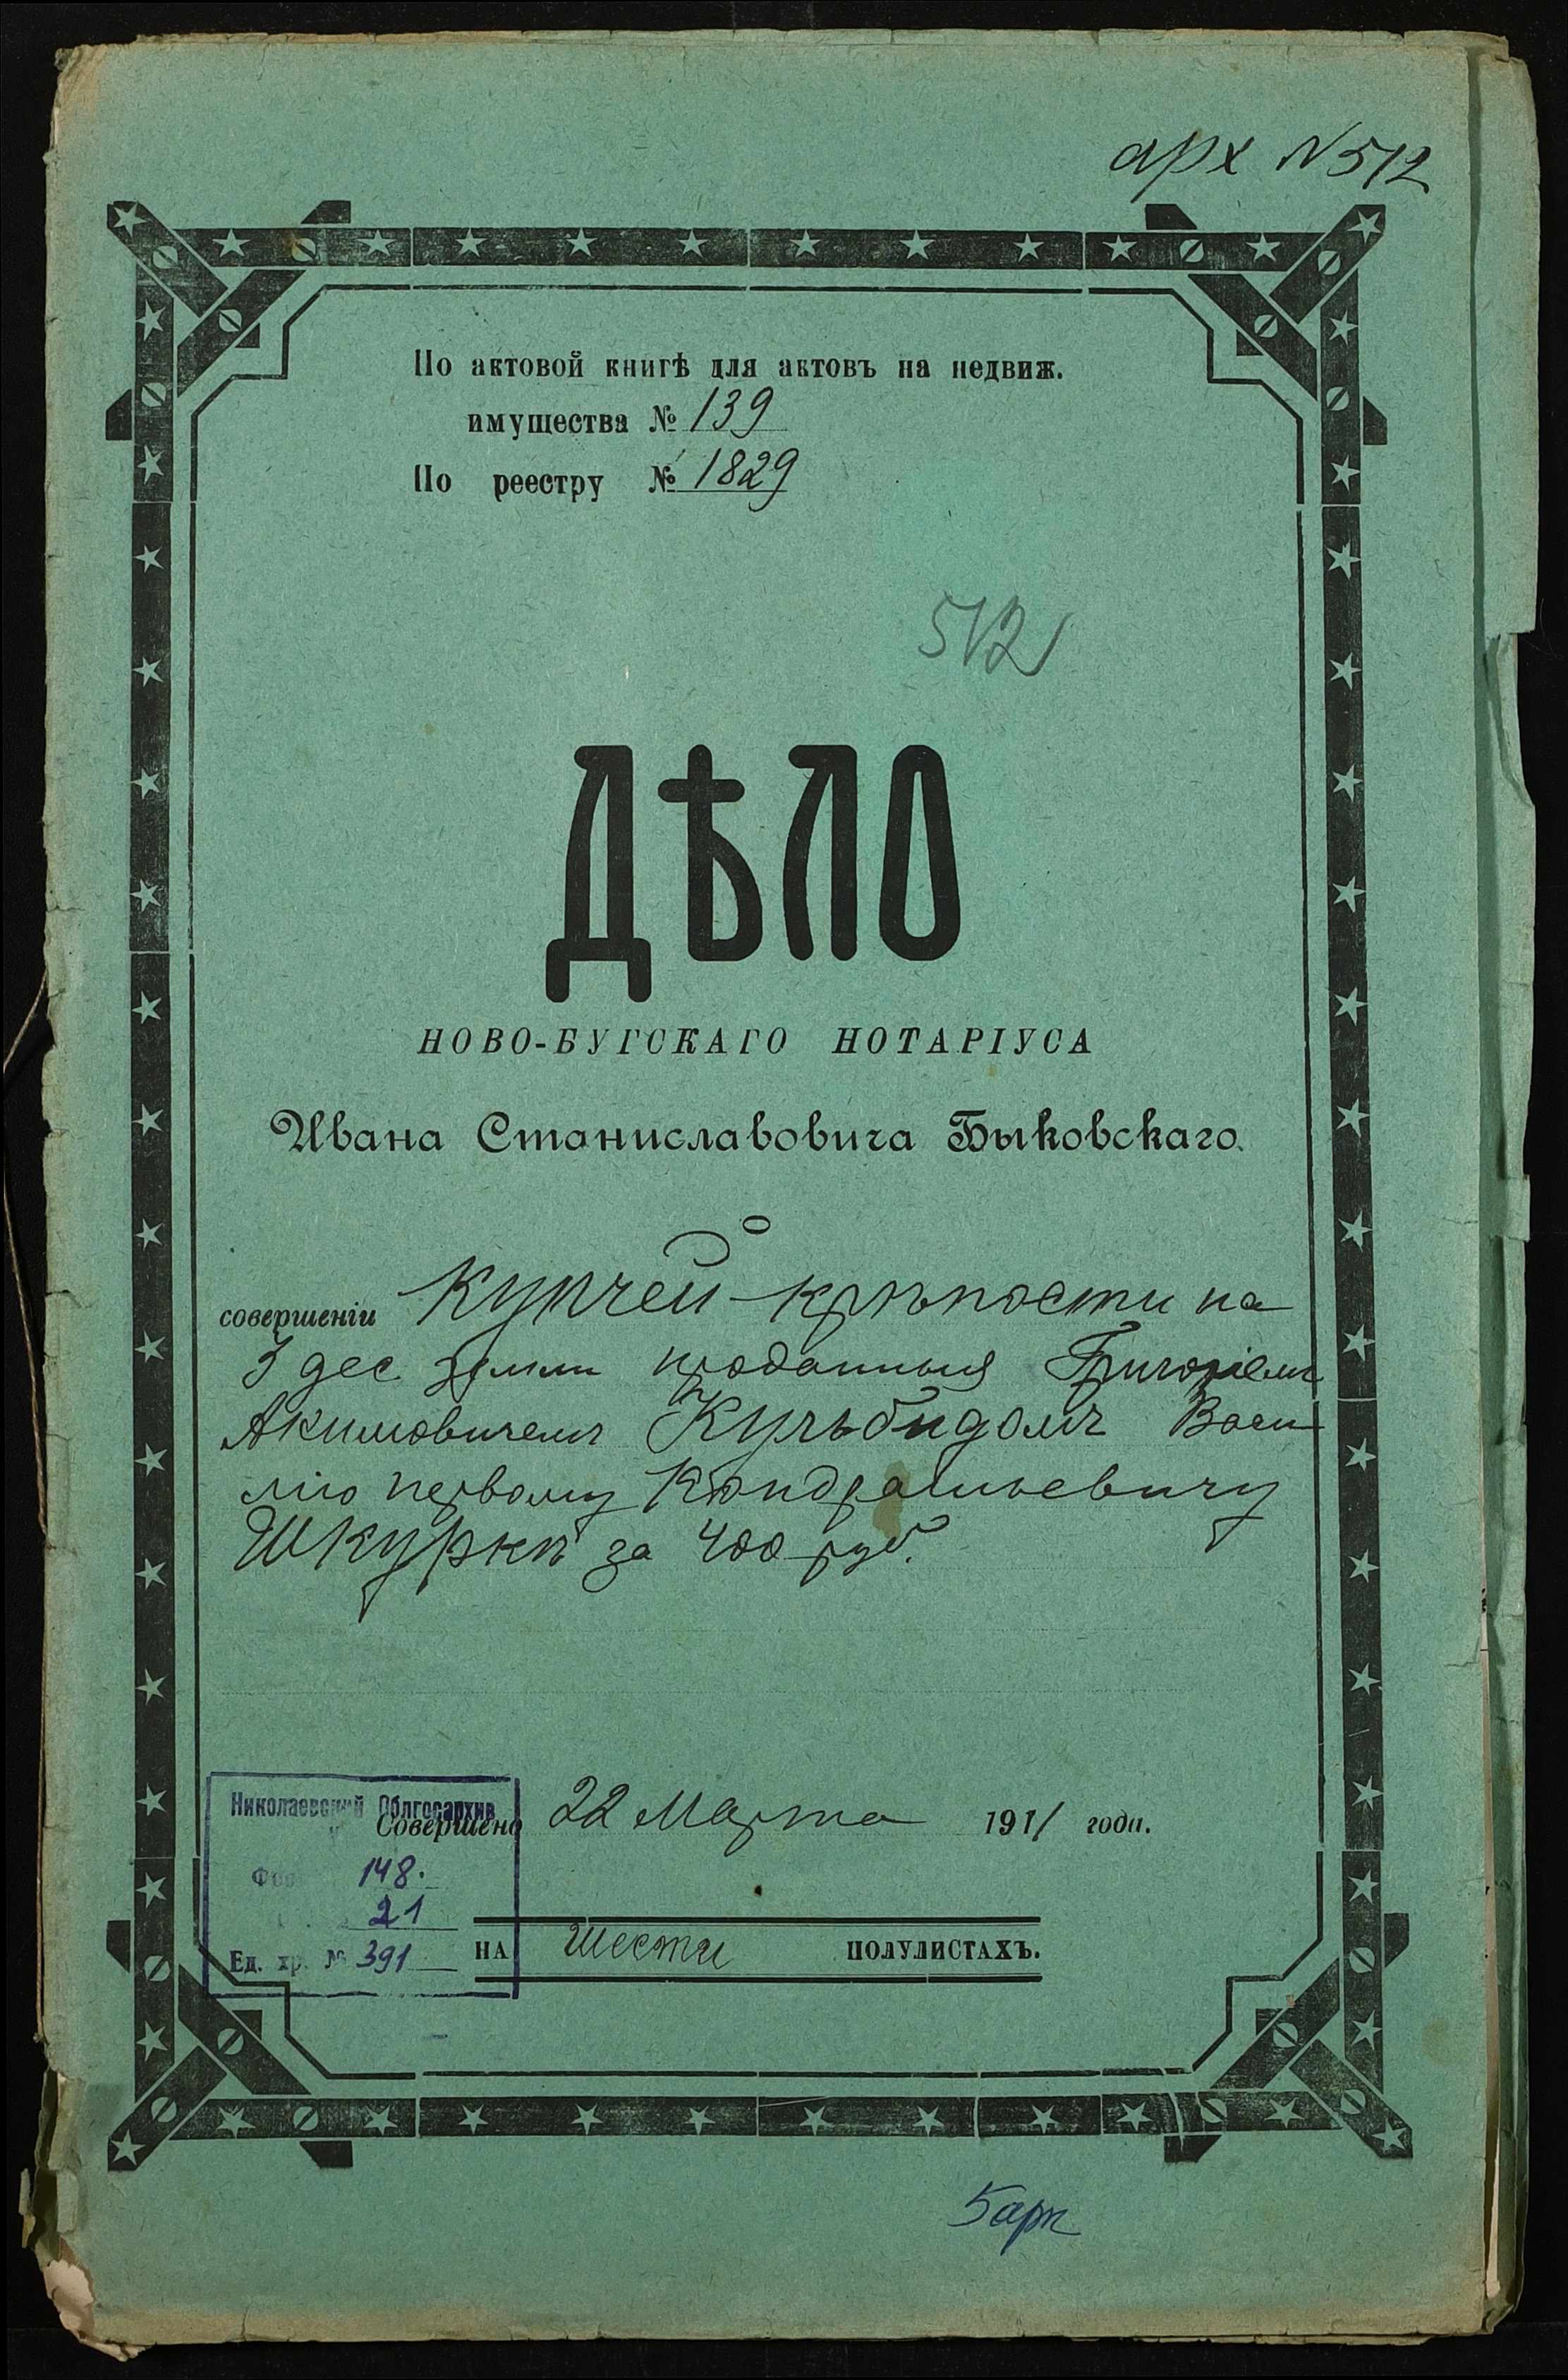 арх №512
По актовой книгѣ для актовъ на недвиж.
имущества № 139
По реестру № 1829
512
ДѢЛО
НОВО-БУГСКАГО НОТАРІУСА
Ивана Станиславовича Быковскаго.
О
совершеніи купчей крѣпости на
3 дес земли проданныя Григоріемъ
Акимовичемъ Кульбидомъ Васи
лію первому Кондратьевичу
Шкуркѣ за 400 руб.
Николаевский Облгосархив
Совершено 22 Марта 1911 года.
148.
21
Ед. хр. № 391
НА шести ПОЛУЛИСТАХЪ.
5 арк